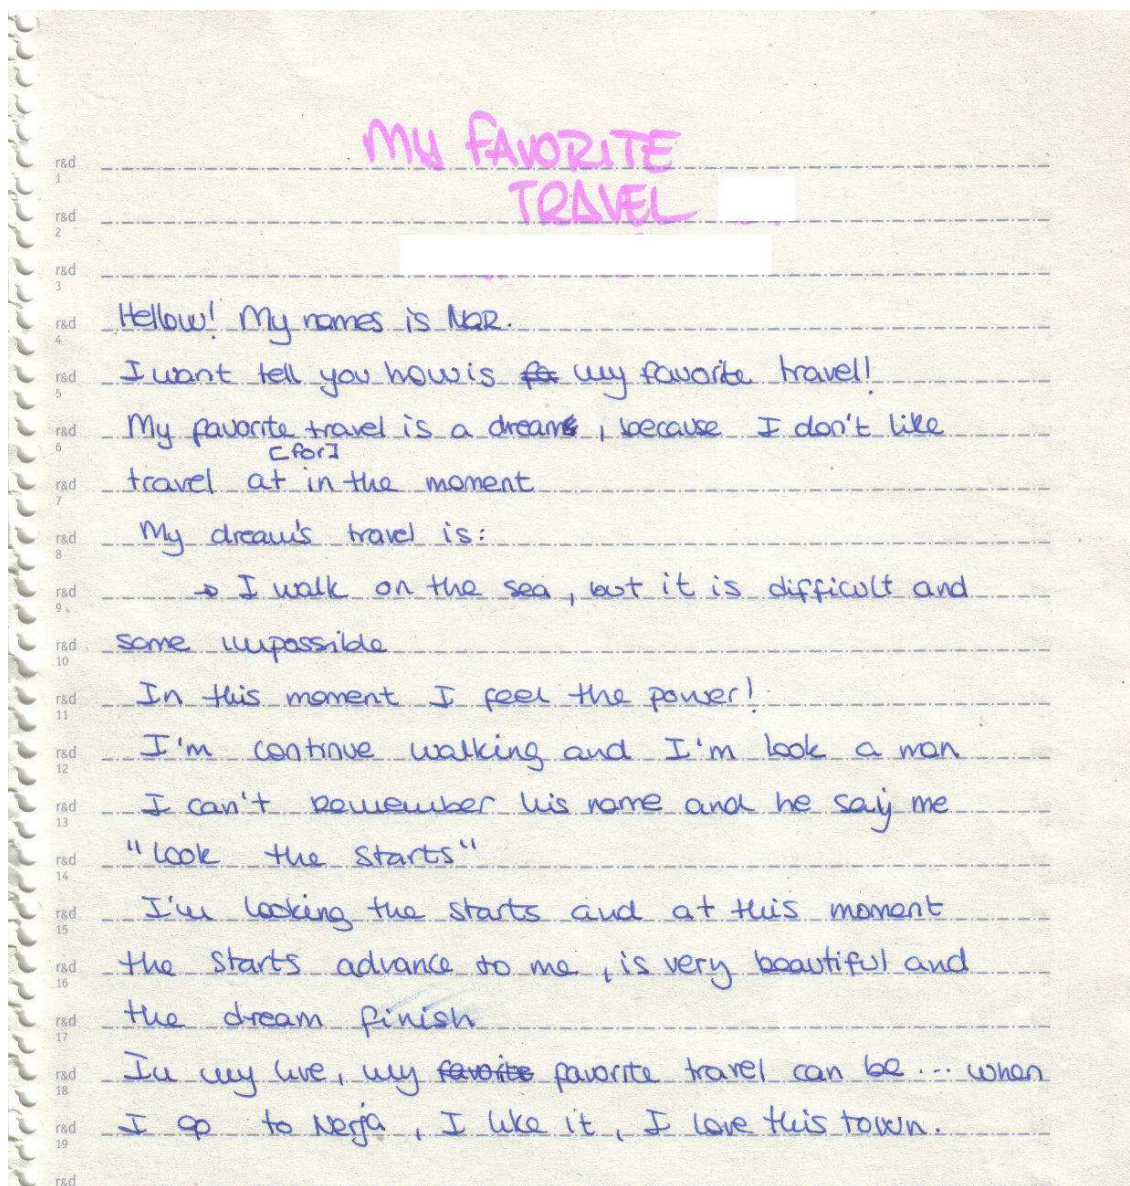 MY FAVORITE
TRAVEL
r&d
1
r&d
2
r&d
3
r&d Hellow! My names is NQR.
4
r&d I want tell you how is my favorite travel!
5
r&d My favorite travel is a dream, because I don't like
6
[for]
r&d travel at in the moment
7
r&d My dream's travel is:
8
r&d → I walk on the sea, but it is difficult and
9
r&d some impossible
10
r&d In this moment I feel the power!
11
r&d I'm continue walking and I'm look a man
12
r&d I can't remember his name and he say me
13
r&d "look the starts"
14
r&d I'm looking the starts and at this moment
15
r&d the starts advance to me, is very beautiful and
16
r&d the dream finish
17
r&d In my live, my favorite favorite travel can be ... when
18
r&d I go to Nerja, I like it, I love this town.
19
r&d